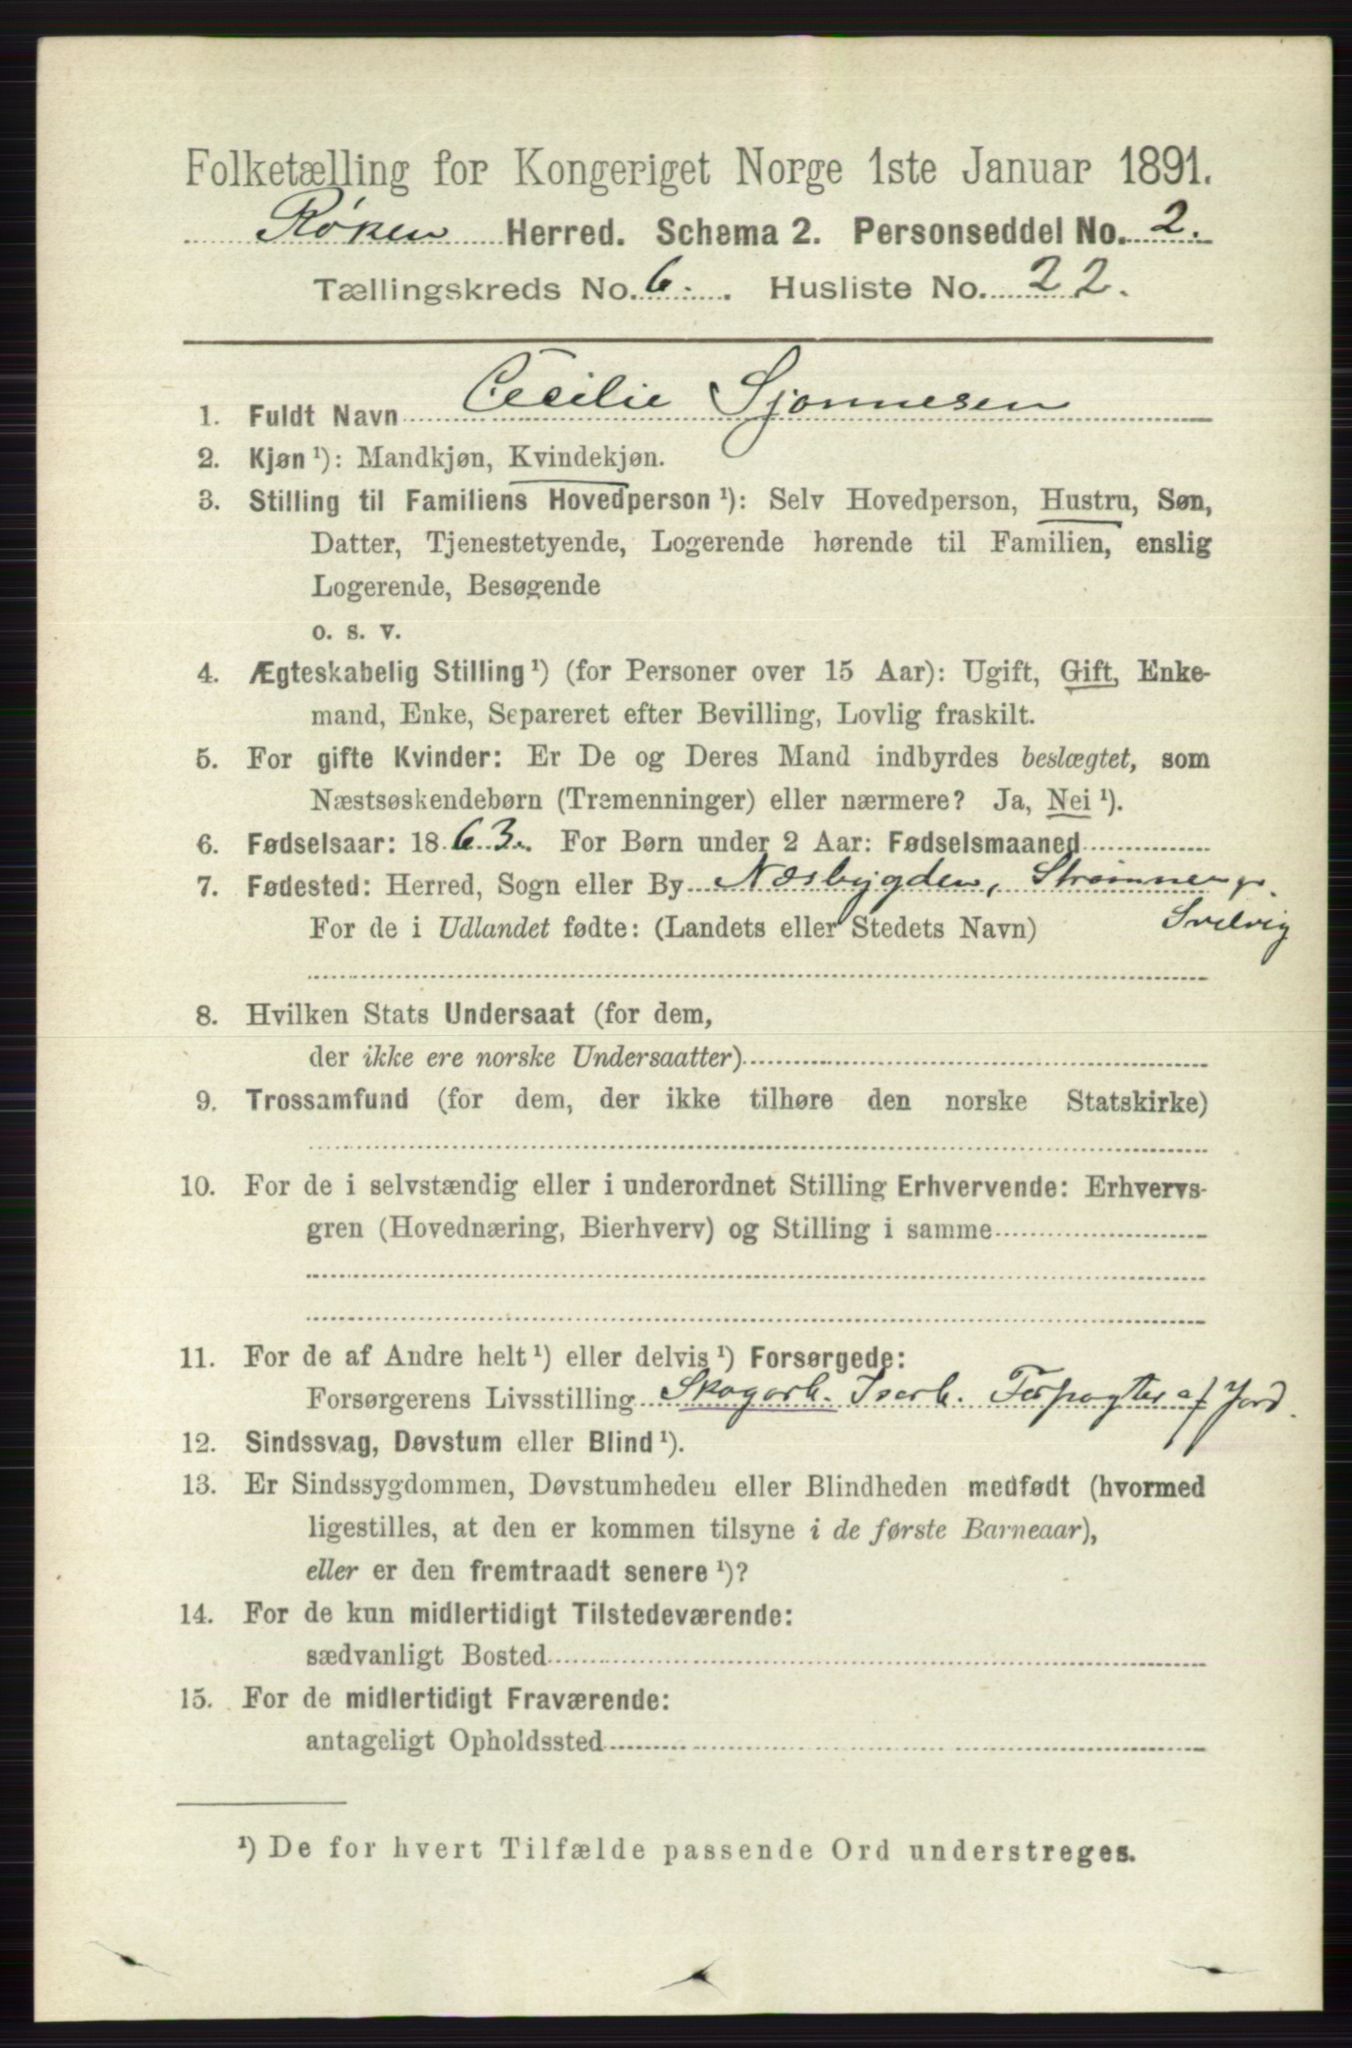 Folketælling for Kongeriget Norge 1ste Januar 1891.
Røken Herred. Schema 2. Personseddel No. 2.
Tællingskreds No. 6. Husliste No. 22.
1. Fuldt Navn Cecilie Sjonnesen
2. Kjøn ¹): Mandkjøn, Kvindekjøn.
3. Stilling til Familiens Hovedperson ¹): Selv Hovedperson, Hustru, Søn,
Datter, Tjenestetyende, Logerende hørende til Familien, enslig
Logerende, Besøgende
o. s. v.
4. Ægteskabelig Stilling ¹) (for Personer over 15 Aar): Ugift, Gift, Enke-
mand, Enke, Separeret efter Bevilling, Lovlig fraskilt.
5. For gifte Kvinder: Er De og Deres Mand indbyrdes beslægtet, som
Næstsøskendebørn (Tremenninger) eller nærmere? Ja, Nei ¹).
6. Fødselsaar: 1863. For Børn under 2 Aar: Fødselsmaaned
7. Fødested: Herred, Sogn eller By Næsbygden, Strømme
Svelvig
For de i Udlandet fødte: (Landets eller Stedets Navn)
8. Hvilken Stats Undersaat (for dem,
der ikke ere norske Undersaatter)
9. Trossamfund (for dem, der ikke tilhøre den norske Statskirke)
10. For de i selvstændig eller i underordnet Stilling Erhvervende: Erhvervs-
gren (Hovednæring, Bierhverv) og Stilling i samme
11. For de af Andre helt ¹) eller delvis ¹) Forsørgede:
Forsørgerens Livsstilling Skogarb. Iserb. Forpagter af Jord.
12. Sindssvag, Døvstum eller Blind ¹).
13. Er Sindssygdommen, Døvstumheden eller Blindheden medfødt (hvormed
ligestilles, at den er kommen tilsyne i de første Barneaar),
eller er den fremtraadt senere ¹)?
14. For de kun midlertidigt Tilstedeværende:
sædvanligt Bosted
15. For de midlertidigt Fraværende:
antageligt Opholdssted
¹) De for hvert Tilfælde passende Ord understreges.